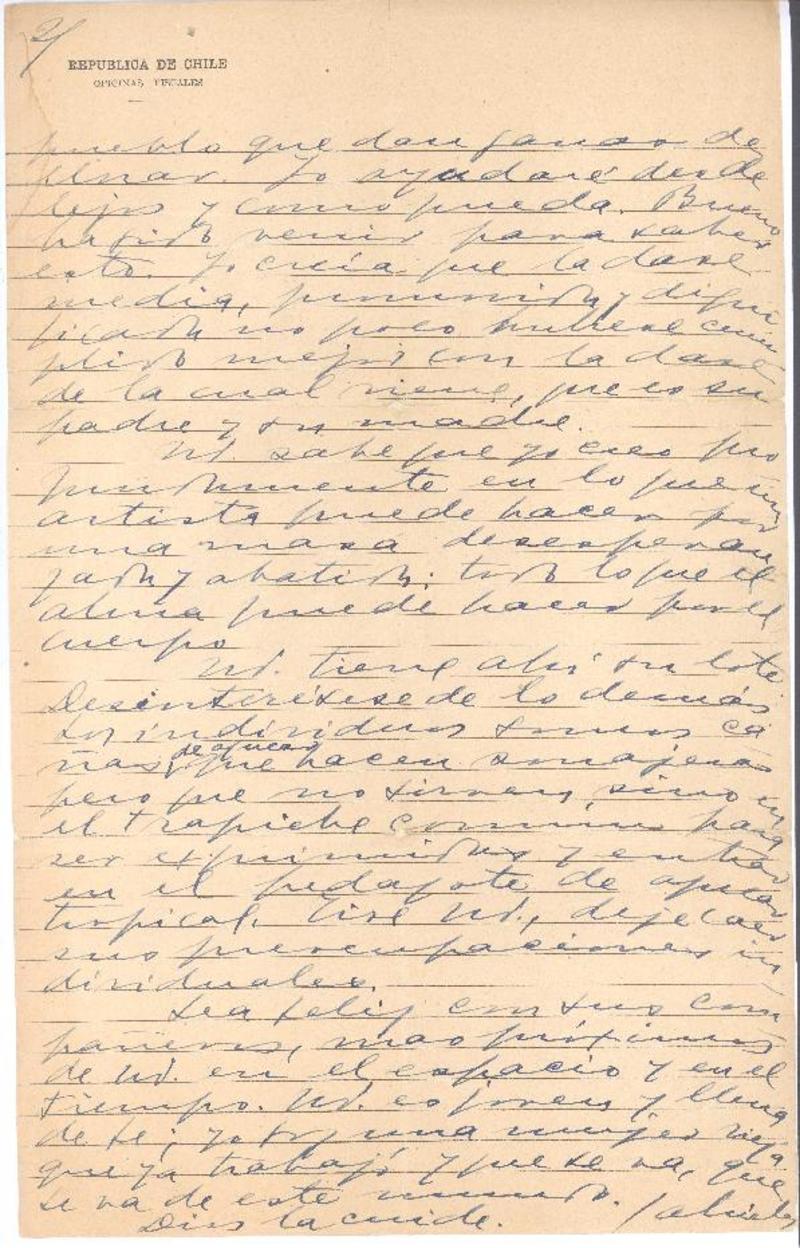 2/
REPUBLICA DE CHILE
OFICINAS FISCALES
pueblo que dan ganas de
llorar. Yo ayudaré desde
lejos y como pueda. Bueno
ha sido venir para saber
esto. Yo creía que la clase
media, y digni
ficada un poco hubiese cum
plido mejor con la clase
de la cual viene, que es su
padre y su madre.
Ud. sabe que yo creo pro
fundamente en lo que un
artista puede hacer por
una masa desesperan
zada y abatida; todo lo que el
alma puede hacer por el
cuerpo
Ud. tiene ahí su lote.
Desinterésese de lo demás
Los individuos somos ca
ñas, de azúcar que hacen sonajeras
pero que no sirven, sino en
el trapiche común para
ser exprimidas y entrar
en el pedazote de azúcar
tropical. Tire Ud., deje caer
sus preocupaciones in
dividuales.
Sea feliz con sus com
pañeros, mas próximos
de Ud. en el espacio y en el
tiempo. Ud. es joven y llena
de fe; yo soy una mujer vieja
que ya trabajó y que se va, que
se va de este mundo.
Dios la cuide.